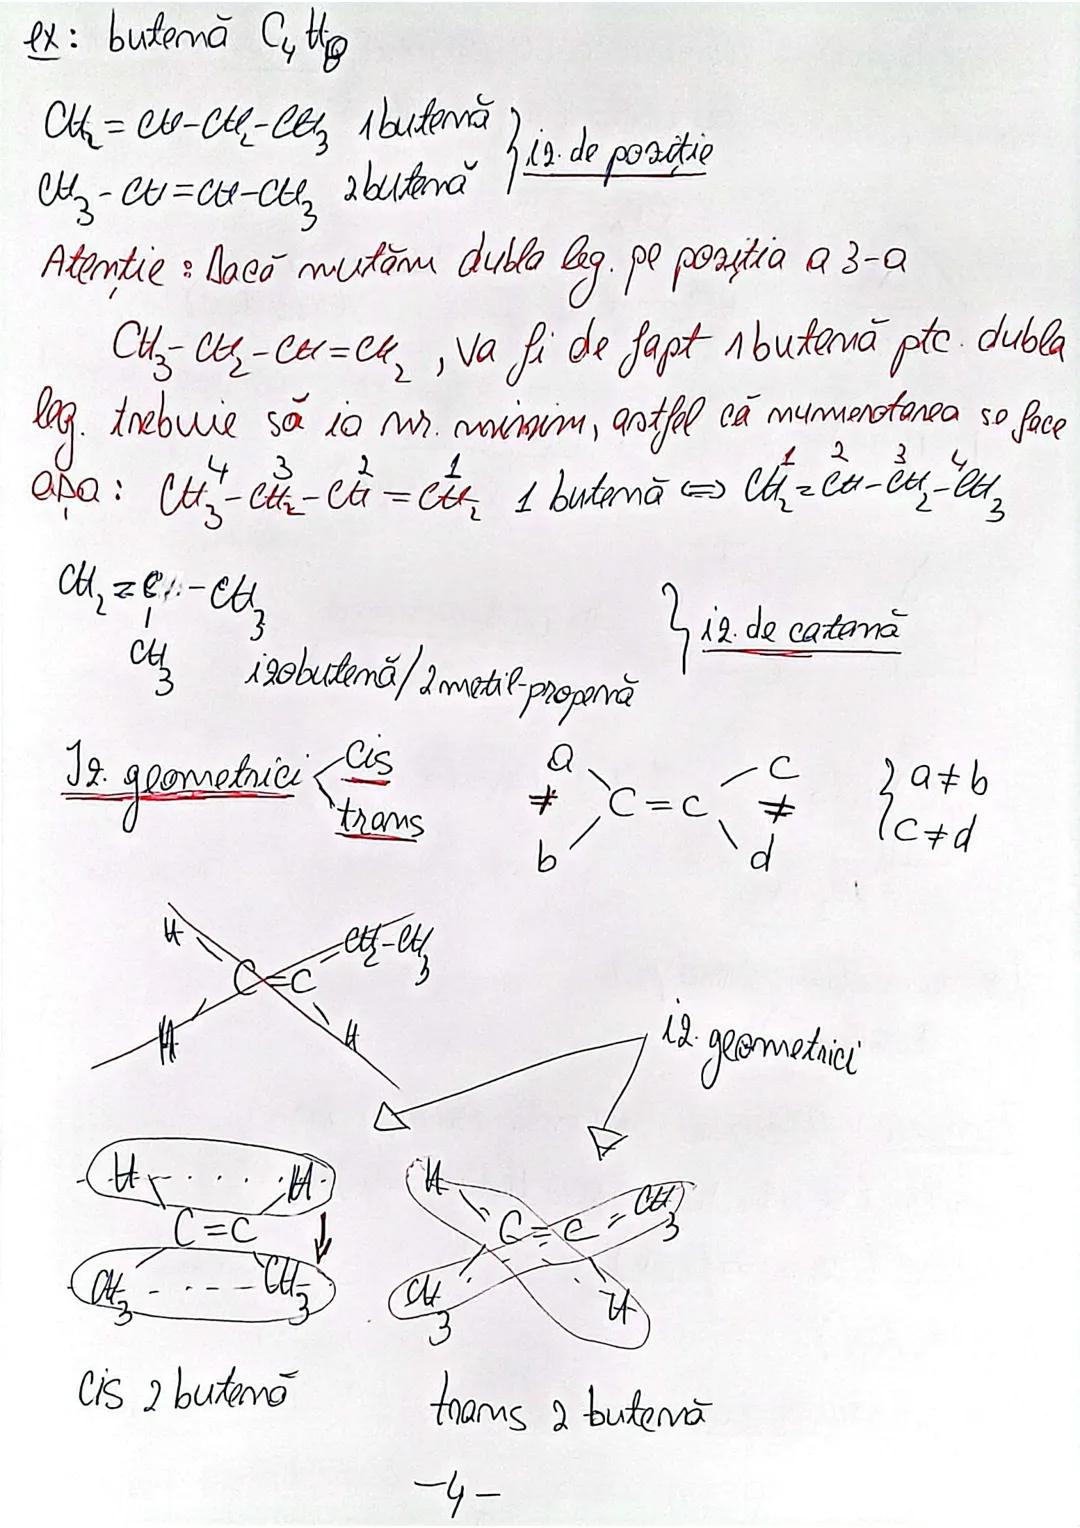 ex: butenă C₄H₈
CH₂ = CH-CH₂-CH₃ 1 butenă
CH₃ - CH = CH-CH₃ 2 butenă } iz. de poziție
Atenție : Dacă mutăm dubla leg. pe poziția a 3-a
CH₃- CH₂ -CH=CH₂ , va fi de fapt 1 butenă ptc. dubla
leg. trebuie să ia nr. minim, astfel că numerotarea se face
4 3 2 1 1 2 3 4
așa : CH₃ - CH₂ - CH = CH₂ 1 butenă <=> CH₂ = CH-CH₂-CH₃
CH₂ = C - CH₃
|
CH₃ } iz. de catenă
izobutenă/2 metil-propenă
Iz. geometrici cis
trans
a c
≠ C=C ≠
b d
{ a≠b
c≠d
H CH₂-CH₃
C=C
H H
iz. geometrici
H . . . . . H
C=C
CH₃ - - - - CH₃
H CH₃
C=C
CH₃ H
cis 2 butenă
trans 2 butenă
-4-